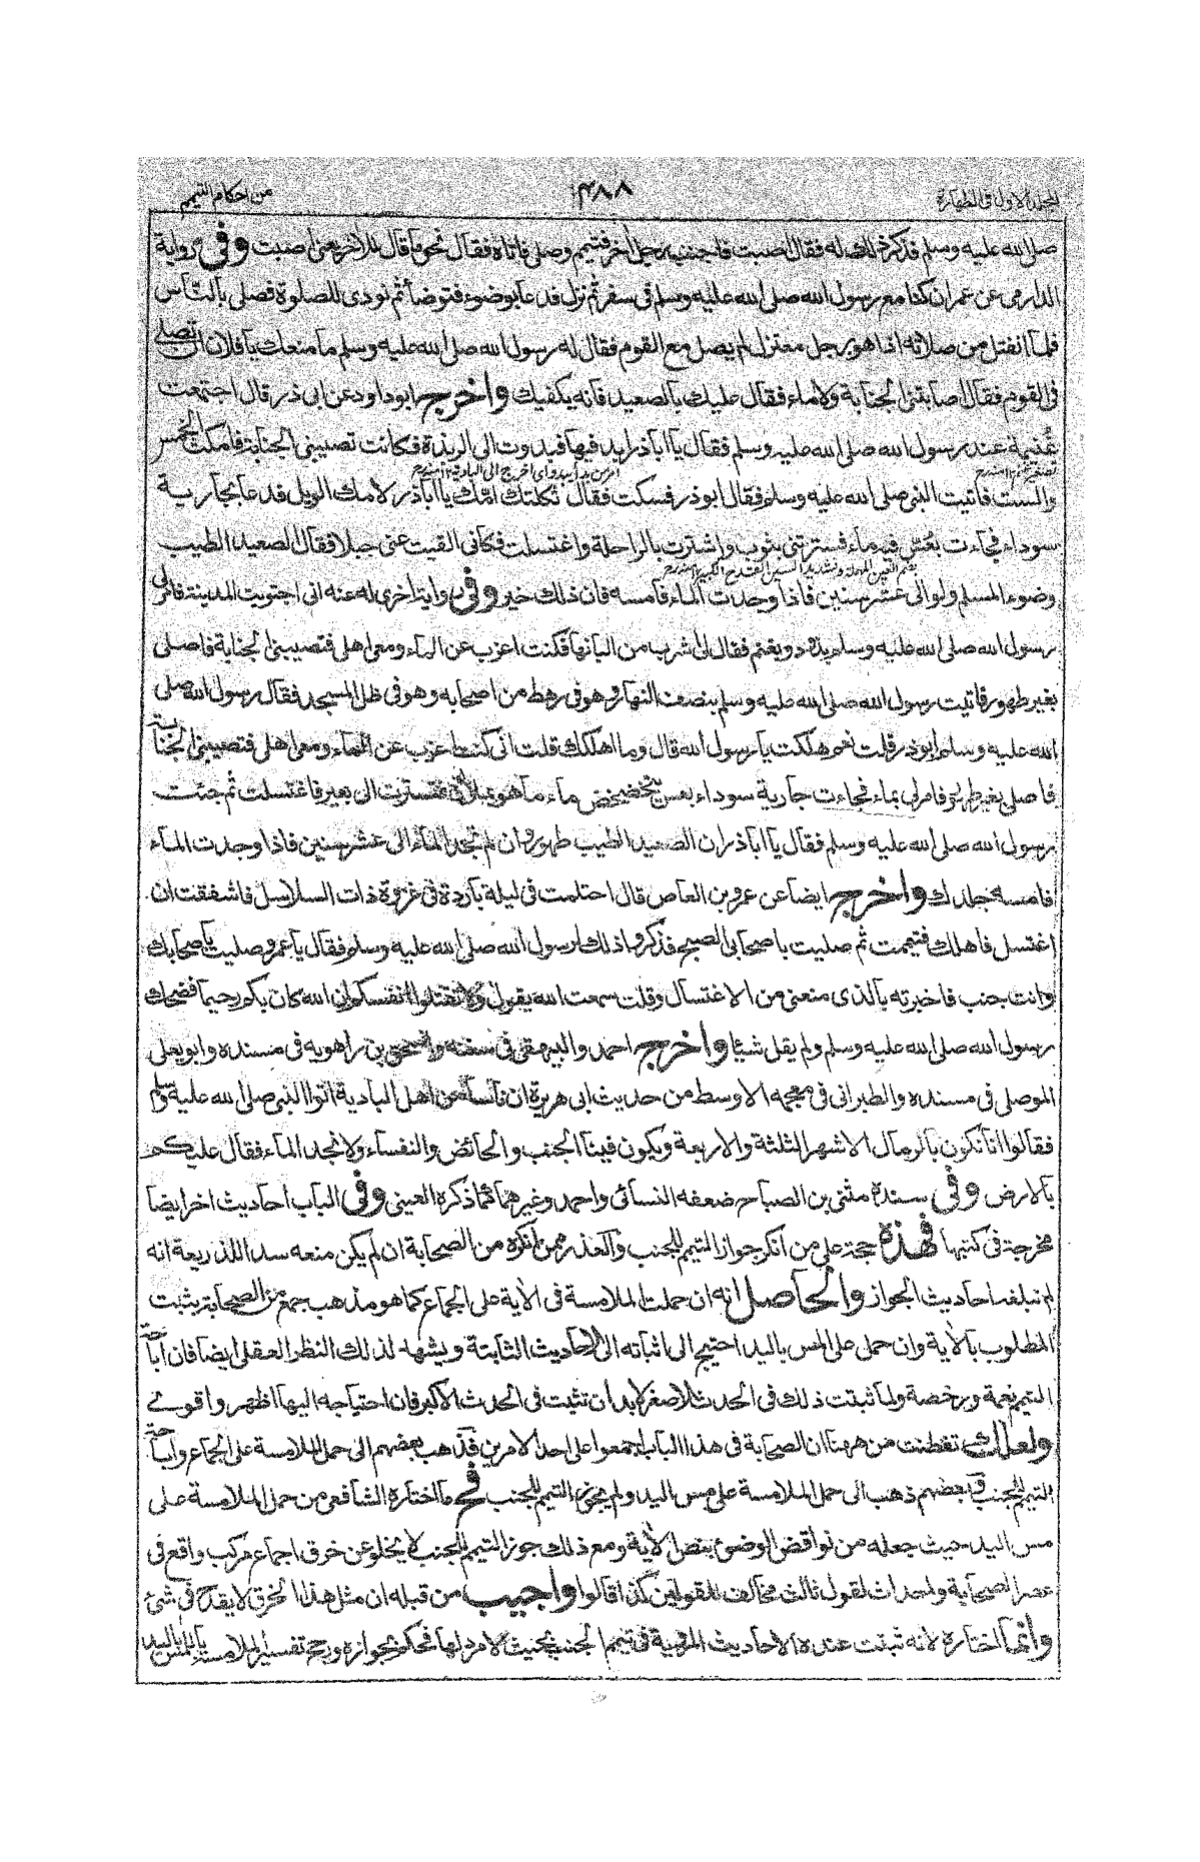 المجلد الاول فى الطهارة
٤٨٨
من احكام التيمم
صلى الله عليه وسلم فذكر ذلك له فقال اصبت فاجنب رجل آخر فتيمم وصلى فاتاه فقال نحو ما قال للآخر يعنى اصبت وفى رواية
الدارمى عن عمران كنا مع رسول الله صلى الله عليه وسلم فى سفر ثم نزل فدعا بوضوء فتوضأ ثم نودى للصلوة فصلى بالناس
فلما انفتل من صلاته اذا هو برجل معتزل لم يصل مع القوم فقال له رسول الله صلى الله عليه وسلم ما منعك يا فلان ان تصلى
فى القوم فقال اصابتنى الجنابة ولا ماء فقال عليك بالصعيد فانه يكفيك واخرج ابو داود عن ابى ذر قال اجتمعت
غنيمة عند رسول الله صلى الله عليه وسلم فقال يا اباذر ابد فيها فبدوت الى الربذة فكانت تصيبنى الجنابة فامكث الخمس
امر من بدا يبدو اى اخرج الى البادية ١٢ منه رح
والست فاتيت النبى صلى الله عليه وسلم فقال ابو ذر فسكت فقال ثكلتك امك يا اباذر لامك الويل فدعا بجارية
سوداء فجاءت بعس فيه ماء فسترتنى بثوب واشترت بالراحلة واغتسلت فكأنى القيت عنى جبلا فقال الصعيد الطيب
بضم العين المهملة وتشديد السين القدح الكبير ١٢ منه رح
وضوء المسلم ولو الى عشر سنين فاذا وجدت الماء فامسه فان ذلك خير وفى رواية اخرى له عنه انى اجتويت المدينة فامرلى
رسول الله صلى الله عليه وسلم بذود وبغنم فقال لى اشرب من البانها فكنت اعزب عن الماء ومعى اهلى فتصيبنى الجنابة فاصلى
بغير طهور فاتيت رسول الله صلى الله عليه وسلم بنصف النهار وهو فى رهط من اصحابه وهو فى ظل المسجد فقال رسول الله صلى
الله عليه وسلم ابو ذر قلت نعم هلكت يا رسول الله قال وما اهلكك قلت انى كنت اعزب عن الماء ومعى اهلى فتصيبنى الجنابة
فاصلى بغير طهور فامر لى بماء فجاءت جارية سوداء بعس يتخضخض ماء ما هو بملآن فتسترت الى بعير فاغتسلت ثم جئت
رسول الله صلى الله عليه وسلم فقال يا اباذر ان الصعيد الطيب طهور وان لم تجد الماء الى عشر سنين فاذا وجدت الماء
فامسه جلدك واخرج ايضا عن عمرو بن العاص قال احتلمت فى ليلة باردة فى غزوة ذات السلاسل فاشفقت ان
اغتسل فاهلك فتيممت ثم صليت باصحابى الصبح فذكروا ذلك لرسول الله صلى الله عليه وسلم فقال يا عمرو صليت باصحابك
وانت جنب فاخبرته بالذى منعنى من الاغتسال وقلت سمعت الله يقول ولا تقتلوا انفسكم ان الله كان بكم رحيما فضحك
رسول الله صلى الله عليه وسلم ولم يقل شيئا واخرج احمد والبيهقى فى سننه واسحق بن راهويه فى مسنده وابو يعلى
الموصلى فى مسنده والطبرانى فى معجمه الاوسط من حديث ابى هريرة ان ناسا من اهل البادية اتوا النبى صلى الله عليه وسلم
فقالوا انا نكون بالرمال الاشهر الثلثة والاربعة ويكون فينا الجنب والحائض والنفساء ولا نجد الماء فقال عليكم
بالارض وفى سنده مثنى بن الصباح ضعفه النسائى واحمد وغيرهما كما ذكره العينى وفى الباب احاديث اخر ايضا
مخرجة فى كتبها فهذه حجة على من انكر جواز التيمم للجنب والعذر ممن انكره من الصحابة ان لم يكن منعه سدا للذريعة انه
لم تبلغه احاديث الجواز والحاصل انه ان حملت الملامسة فى الآية على الجماع كما هو مذهب جمع من الصحابة يثبت
المطلوب بالآية وان حمل على المس باليد احتيج الى اثباته الى الاحاديث الثابتة ويشهد لذلك النظر العقلى ايضا فان اباحة
التيمم نعمة ورخصة ولما ثبتت ذلك فى الحدث الاصغر لابد ان تثبت فى الحدث الاكبر فان احتياجه اليها اظهر واقوى
ولعلك تفطنت من ههنا ان الصحابة فى هذا الباب اجمعوا على احد الامرين فذهب بعضهم الى حمل الملامسة على الجماع واباحة
التيمم للجنب وبعضهم ذهب الى حمل الملامسة على مس اليد ولم يجوز التيمم للجنب فح ما اختاره الشافعى من حمل الملامسة على
مس اليد حيث جعله من نواقض الوضوء بنص الآية ومع ذلك جوز التيمم للجنب لا يخلو عن خرق اجماع مركب واقع فى
عصر الصحابة واحداث لقول ثالث مخالف للقولين كذا قالوا واجيب من قبله ان مثل هذا الخرق لا يقدح فى شئ
وانما اختاره لانه ثبتت عنده الاحاديث المروية فى تيمم الجنب بحيث لا مرد لها فحكم بجوازه ورجح تفسير الملامسة باللمس باليد